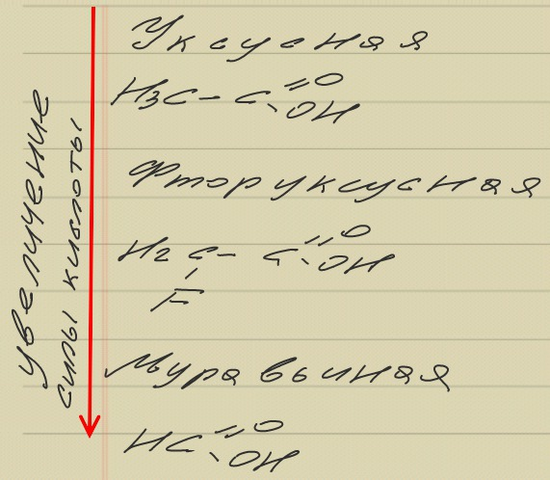 увеличение
силы кислоты
Уксусная
H3C – C =O
OH
Фторуксусная
H2C – C =O
OH
F
Муравьиная
HC =O
OH